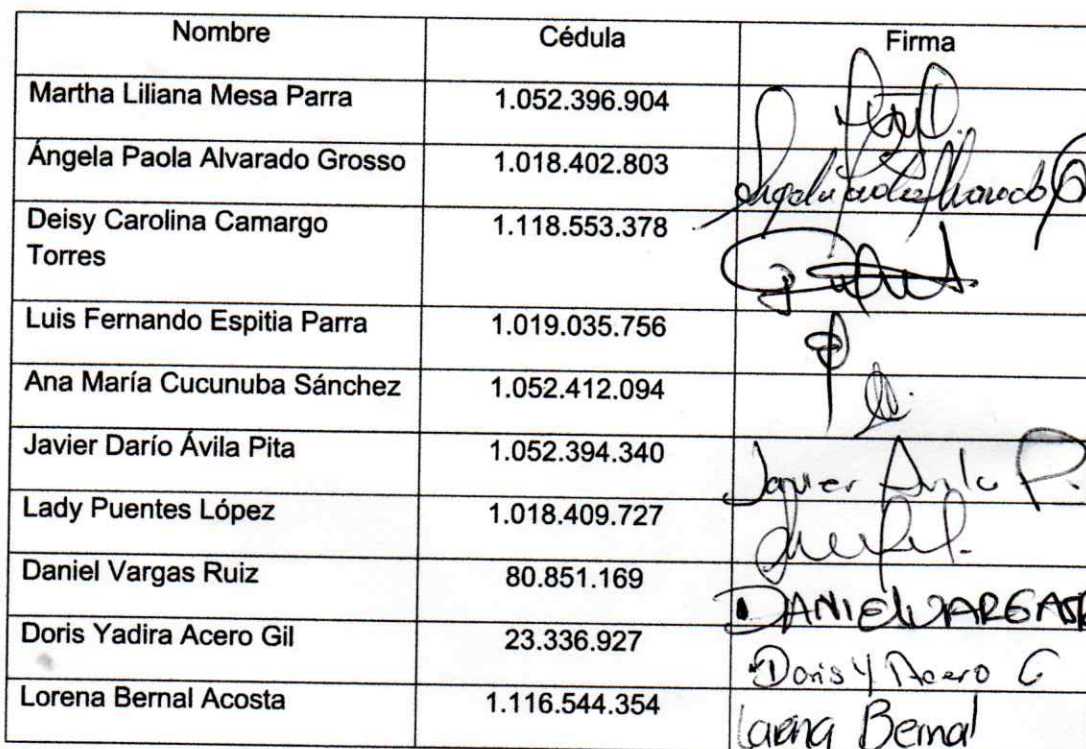 Nombre Cédula Firma
Martha Liliana Mesa Parra 1.052.396.904
Ángela Paola Alvarado Grosso 1.018.402.803 Angela Paola Alvarado G
Deisy Carolina Camargo 1.118.553.378
Torres
Luis Fernando Espitia Parra 1.019.035.756
Ana María Cucunuba Sánchez 1.052.412.094
Javier Darío Ávila Pita 1.052.394.340 Javier Avila P.
Lady Puentes López 1.018.409.727
Daniel Vargas Ruiz 80.851.169 DANIEL VARGAS R
Doris Yadira Acero Gil 23.336.927 Doris Y Acero G
Lorena Bernal Acosta 1.116.544.354 Lorena Bernal